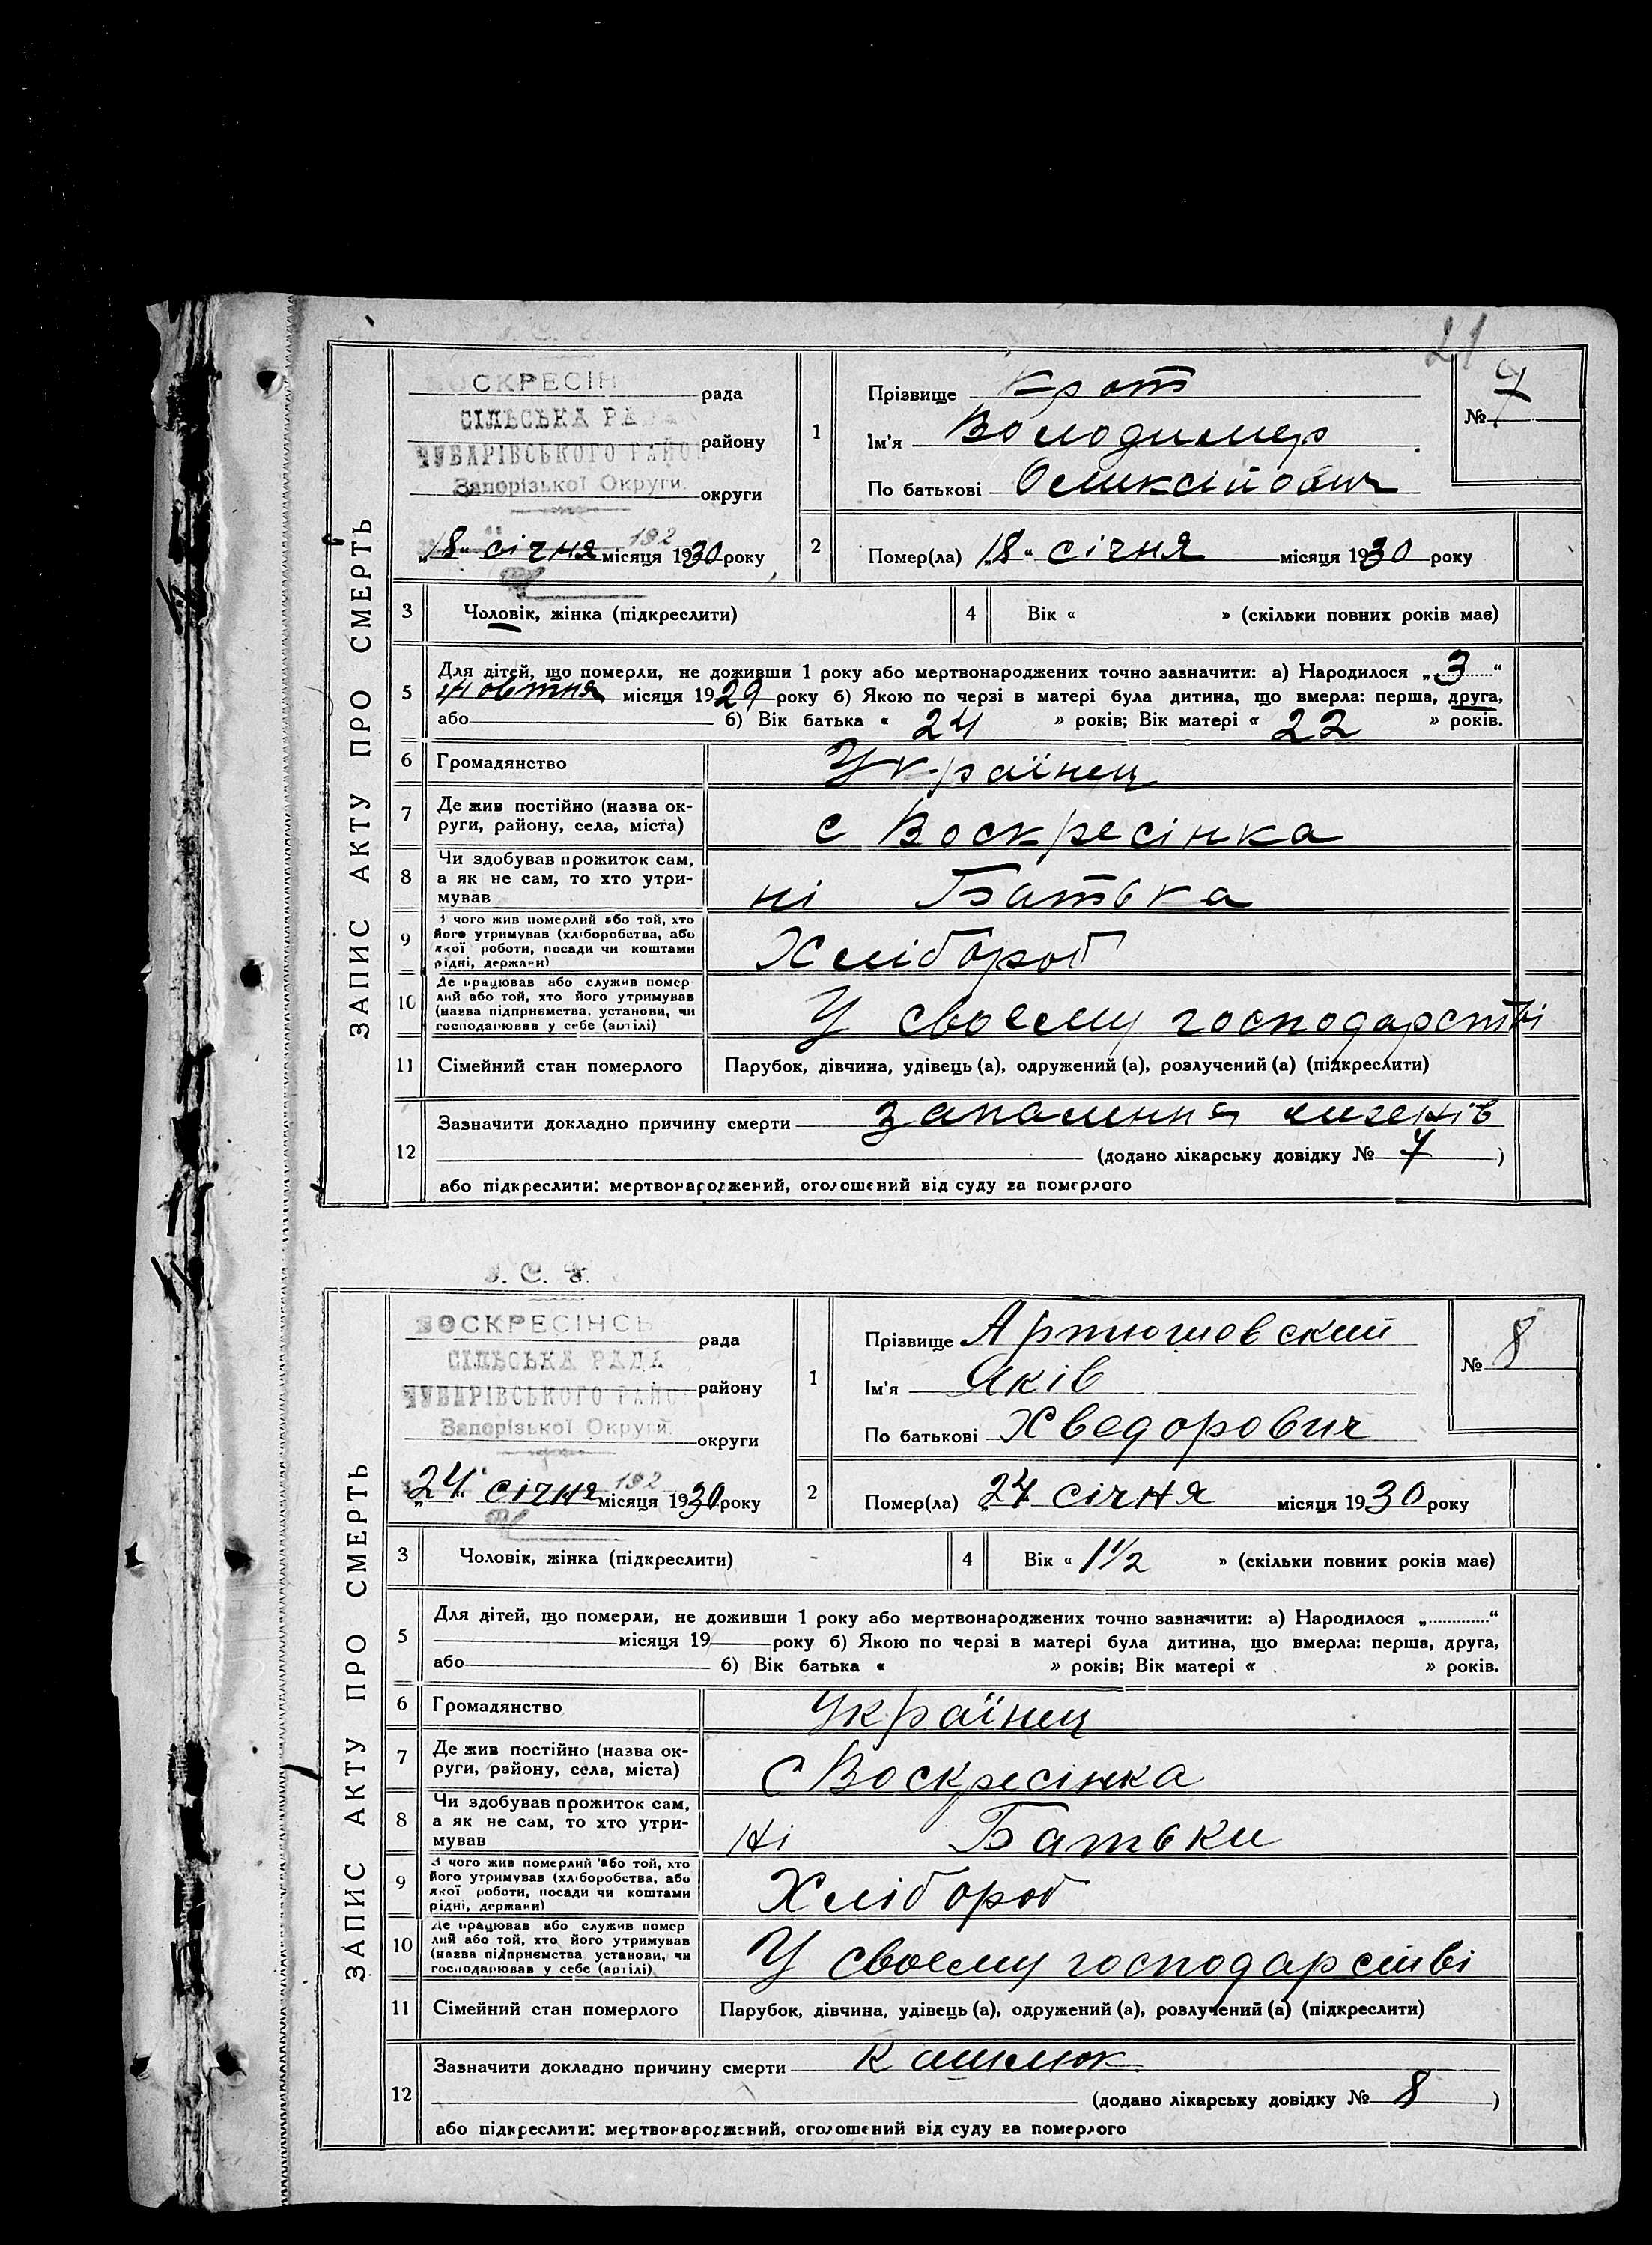 21
ЗАПИС АКТУ ПРО СМЕРТЬ
ВОСКРЕСІН рада
СІЛЬСЬКА РАДА
ЧУБАРІВСЬКОГО РАЙОН району
Запорізької Округи. округи
192
„18“ січня місяця 1930 року
1 Прізвище Крот
Ім'я Володимер
По батькові Оликсійович
№ 7
2 Помер(ла) „18“ січня місяця 1930 року
3 Чоловік, жінка (підкреслити)
4 Вік « » (скільки повних років має)
5 Для дітей, що померли, не доживши 1 року або мертвонароджених точно зазначити: а) Народилося „3“
жовтня місяця 1929 року б) Якою по черзі в матері була дитина, що вмерла: перша, друга,
або б) Вік батька « 24 » років; Вік матері « 22 » років.
6 Громадянство Українец
7 Де жив постійно (назва ок-
руги, району, села, міста) с Воскресінка
8 Чи здобував прожиток сам,
а як не сам, то хто утри-
мував ні Батька
9 З чого жив померлий або той, хто
його утримував (хліборобства, або
якої роботи, посади чи коштами
рідні, держави) Хлібороб
10 Де працював або служив помер-
лий або той, хто його утримував
(назва підприємства, установи, чи
господарював у себе (артілі) У своему господарстві
11 Сімейний стан померлого Парубок, дівчина, удівець (а), одружений (а), розлучений (а) (підкреслити)
12 Зазначити докладно причину смерти запалення лигенів
(додано лікарську довідку № 7)
або підкреслити: мертвонароджений, оголошений від суду за померлого
З. С. У.
ЗАПИС АКТУ ПРО СМЕРТЬ
ВОСКРЕСІНСЬ рада
СІЛЬСЬКА РАДА
ЧУБАРІВСЬКОГО РАЙО району
Запорізької Округи. округи
192
„24“ січня місяця 1930 року
1 Прізвище Артюшевский
Ім'я Яків
По батькові Хведорович
№ 8
2 Помер(ла) „24 січня місяця 1930 року
3 Чоловік, жінка (підкреслити)
4 Вік « 1½ » (скільки повних років має)
5 Для дітей, що померли, не доживши 1 року або мертвонароджених точно зазначити: а) Народилося „ “
місяця 19 року б) Якою по черзі в матері була дитина, що вмерла: перша, друга,
або б) Вік батька « » років; Вік матері « » років.
6 Громадянство Українец
7 Де жив постійно (назва ок-
руги, району, села, міста) С Воскресінка
8 Чи здобував прожиток сам,
а як не сам, то хто утри-
мував Ні Батьки
9 З чого жив померлий або той, хто
його утримував (хліборобства, або
якої роботи, посади чи коштами
рідні, держави) Хлібороб
10 Де працював або служив помер
лий або той, хто його утримував
(назва підприємства установи, чи
господарював у себе (артілі) У своему господарстві
11 Сімейний стан померлого Парубок, дівчина, удівець (а), одружений (а), розлучений (а) (підкреслити)
12 Зазначити докладно причину смерти Кашлюк
(додано лікарську довідку № 8)
або підкреслити: мертвонароджений, оголошений від суду за померлого